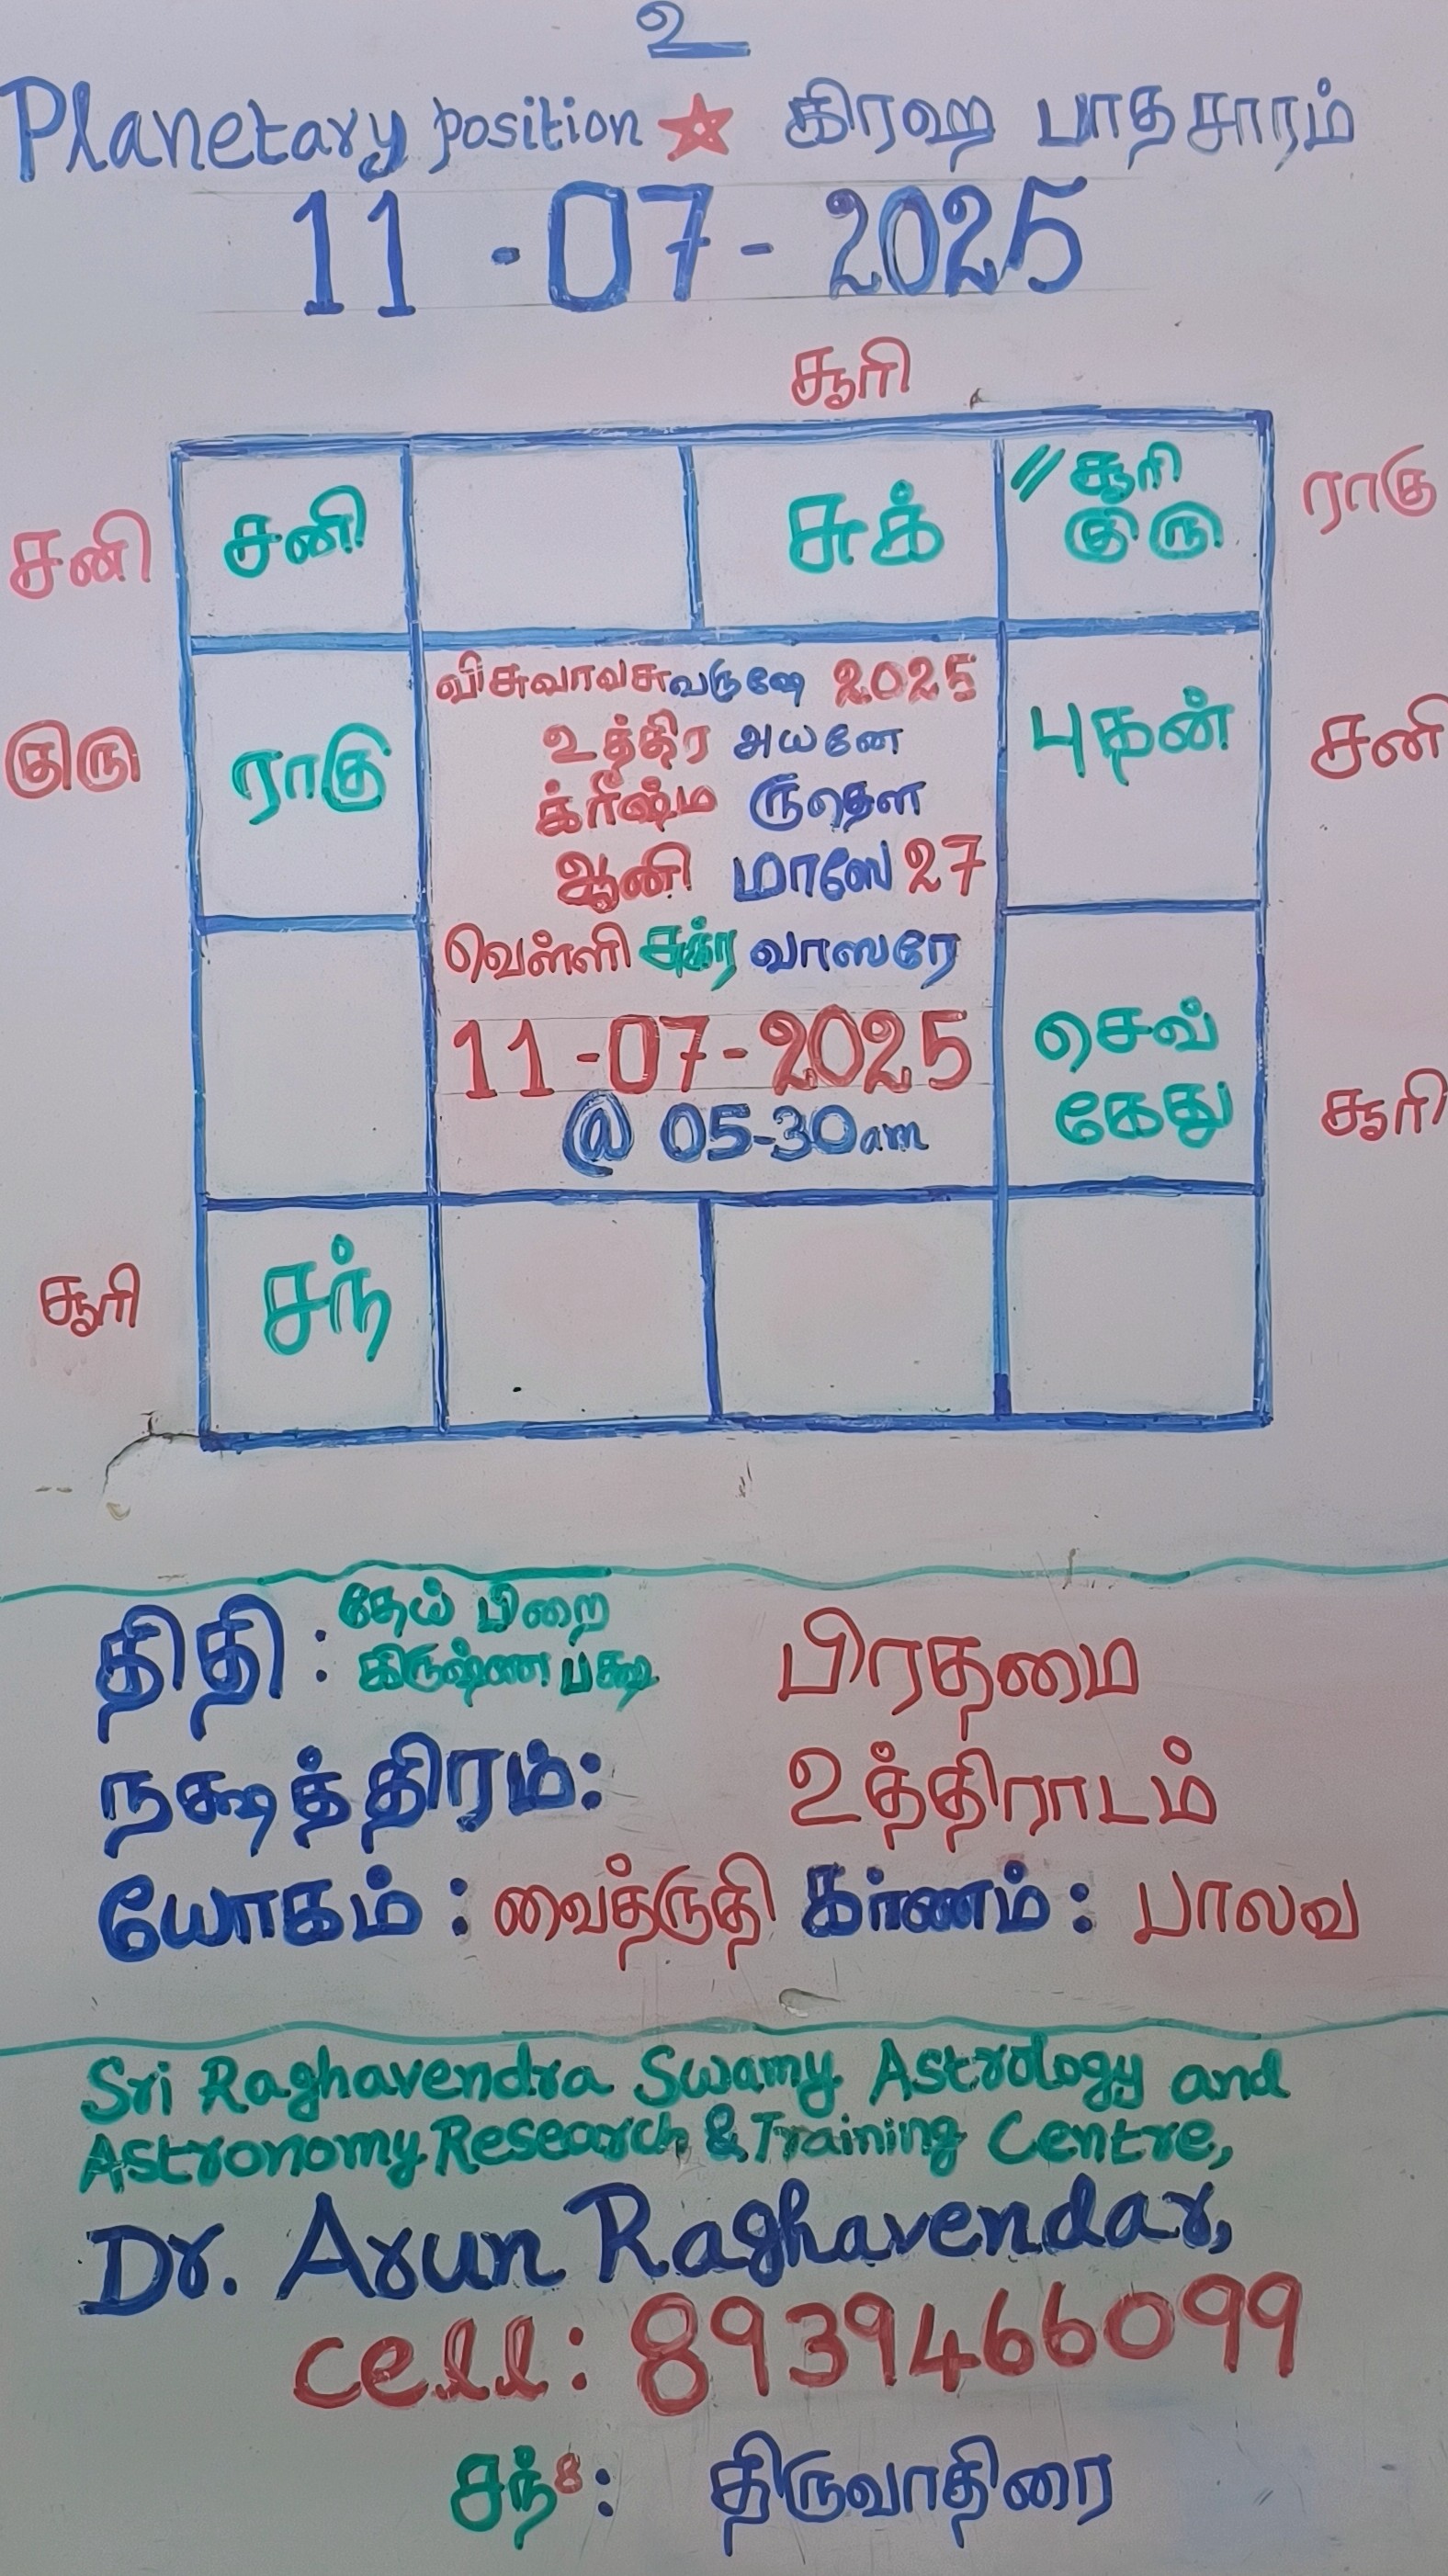 உ
Planetary position ☆ கிரஹ பாதசாரம்
11-07-2025
சூரி
சனி சனி சுக் // சூரி குரு ராகு
குரு ராகு புதன் சனி
விசுவாவசுவருஷே 2025
உத்திர அயனே
க்ரீஷ்ம ருதௌ
ஆனி மாஸே 27
வெள்ளி சுக்ர வாஸரே
11-07-2025
@ 05-30am
செவ்
கேது
சூரி
சூரி சந்
திதி: தேய் பிறை கிருஷ்ண பக்ஷ பிரதமை
நக்ஷத்திரம்: உத்திராடம்
யோகம்: வைத்ருதி கர்ணம்: பாலவ
Sri Raghavendra Swamy Astrology and
Astronomy Research & Training Centre,
Dr. Arun Raghavendar,
cell: 8939466099
சந்8: திருவாதிரை